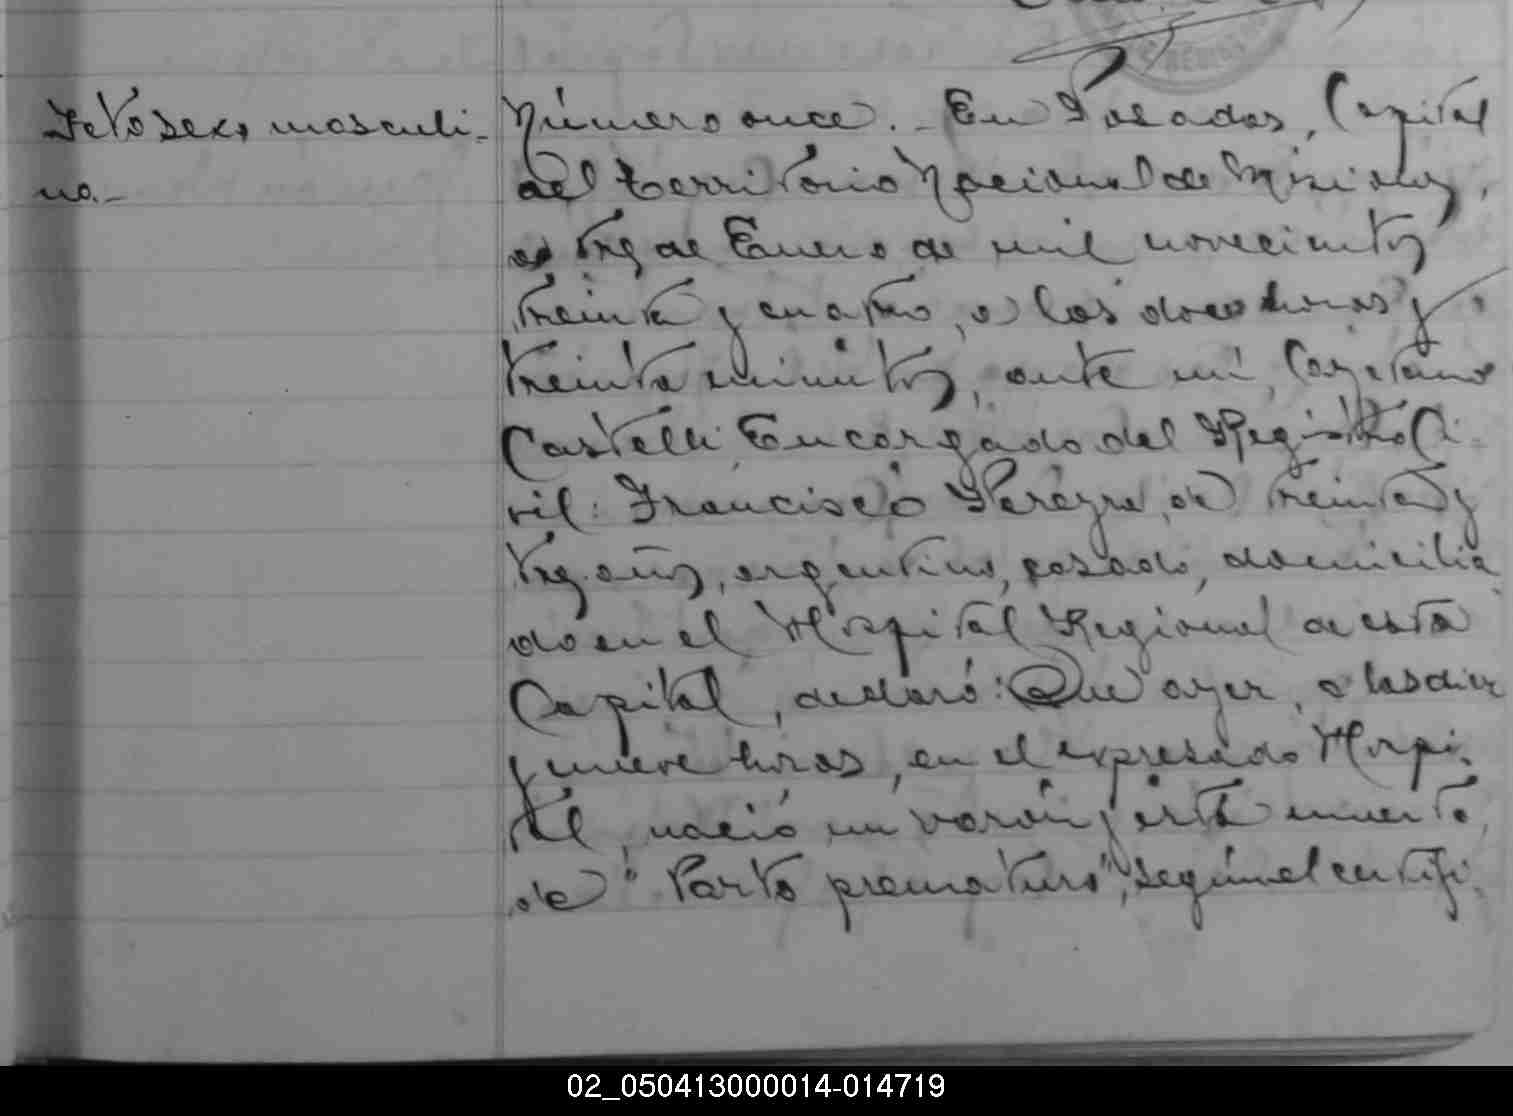 Feto sexo masculi-
no.-
Número once.- En Posadas, Capital
del territorio Nacional de Misiones,
a tres de Enero de mil novecientos
treinta y cuatro, a las doce horas y
treinta minutos, ante mí, Cayetano
Castelli, Encargado del Registro Ci-
vil: Francisco Pereyra, de treinta y
tres años, argentino, casado, domicilia
do en el Hospital Regional de esta
Capital, declaró: Que ayer, a las diez
y nueve horas, en el expresado Hospi-
tal, nació un varón y está muerto,
de "Parto prematuro", según el certifi-
02_050413000014-014719